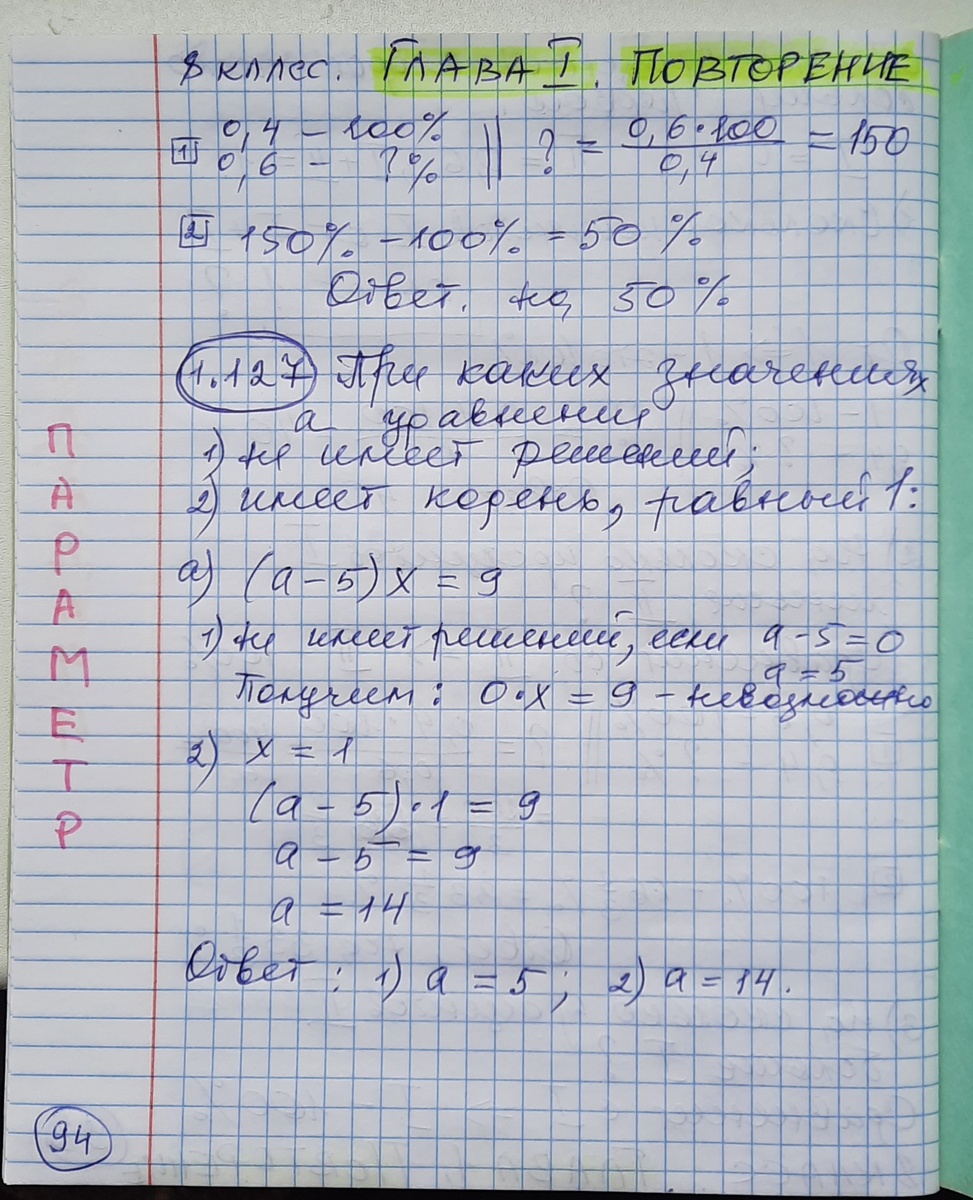 8 класс. ГЛАВА I. ПОВТОРЕНИЕ
1 0,4 - 100% || ? = 0,6·100/0,4 = 150
0,6 - ?%
2 150% - 100% = 50%
Ответ. на 50%
1.127 При каких значениях
а уравнения
1) не имеет решений;
2) имеет корень, равный 1:
а) (a-5)x = 9
1) не имеет решений, если a-5=0
a=5
Получим: 0·x = 9 - невозможно
2) x = 1
(a-5)·1 = 9
a-5 = 9
a = 14
Ответ: 1) a = 5; 2) a = 14.
ПАРАМЕТР
94